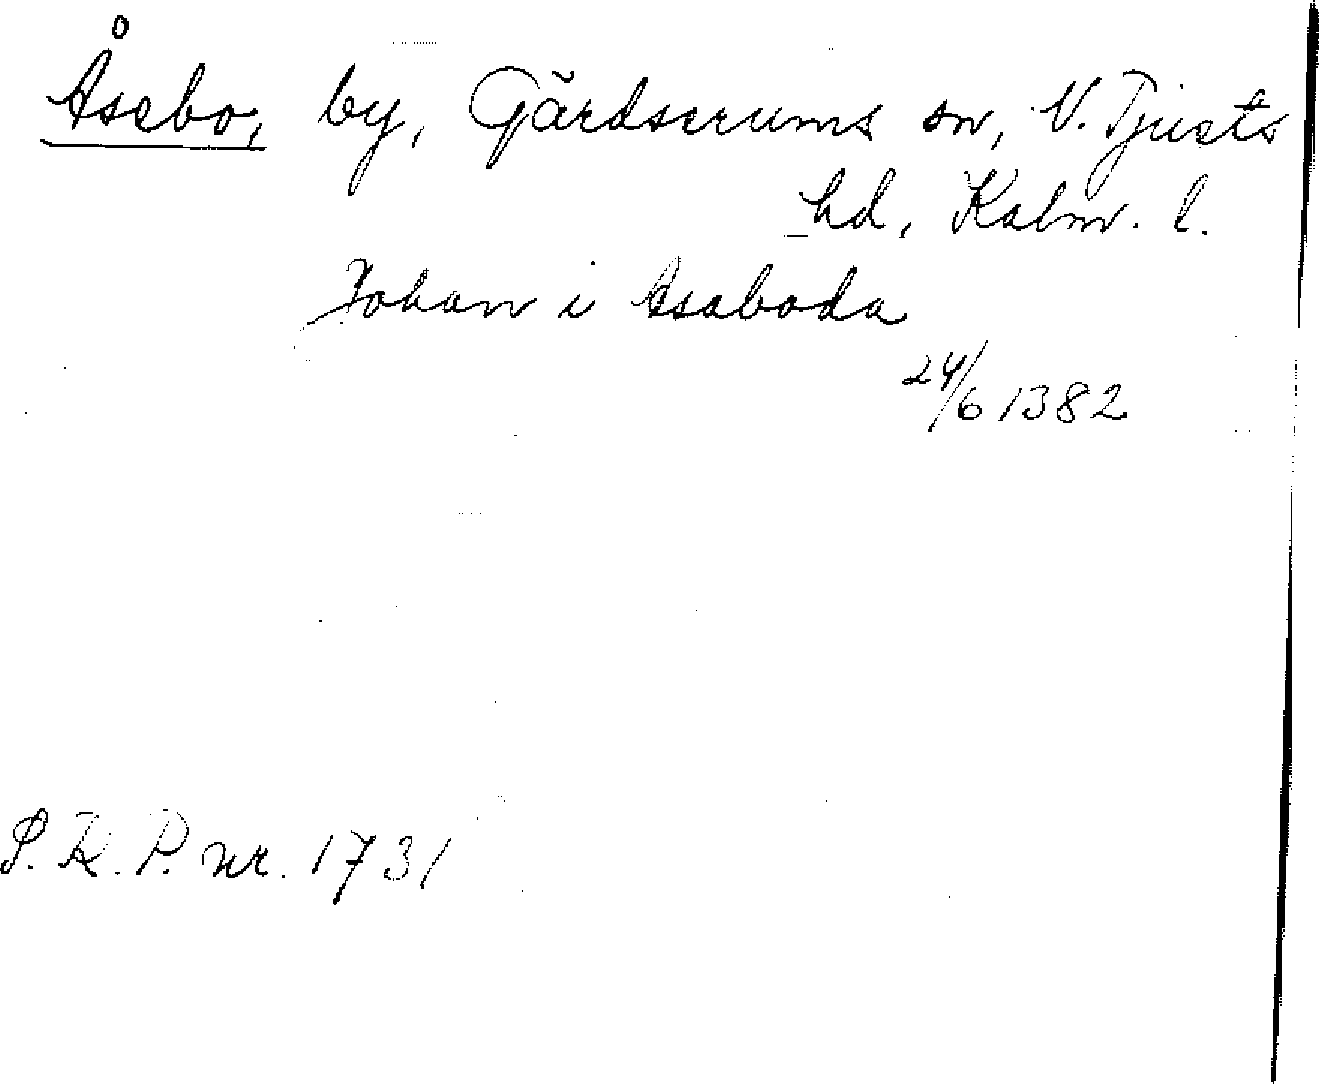 Åsebo, by, Gärdserums sn, N. Tjusts
hd, Kalm. l.
Johan i Asaboda
24/6 1382
S.R.P. nr. 1731